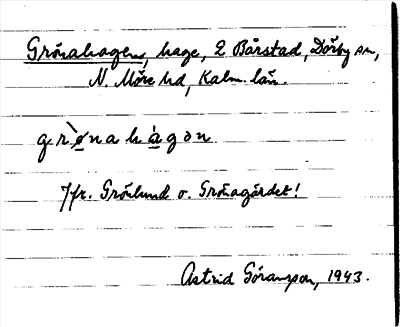 Grönahagen, hage, 2 Bårstad, Dörby sn,
N. Möre hd, Kalm. län.
grø̀nahàgən
Jfr. Grönlund o. Grönagärdet!
Astrid Göransson, 1943.